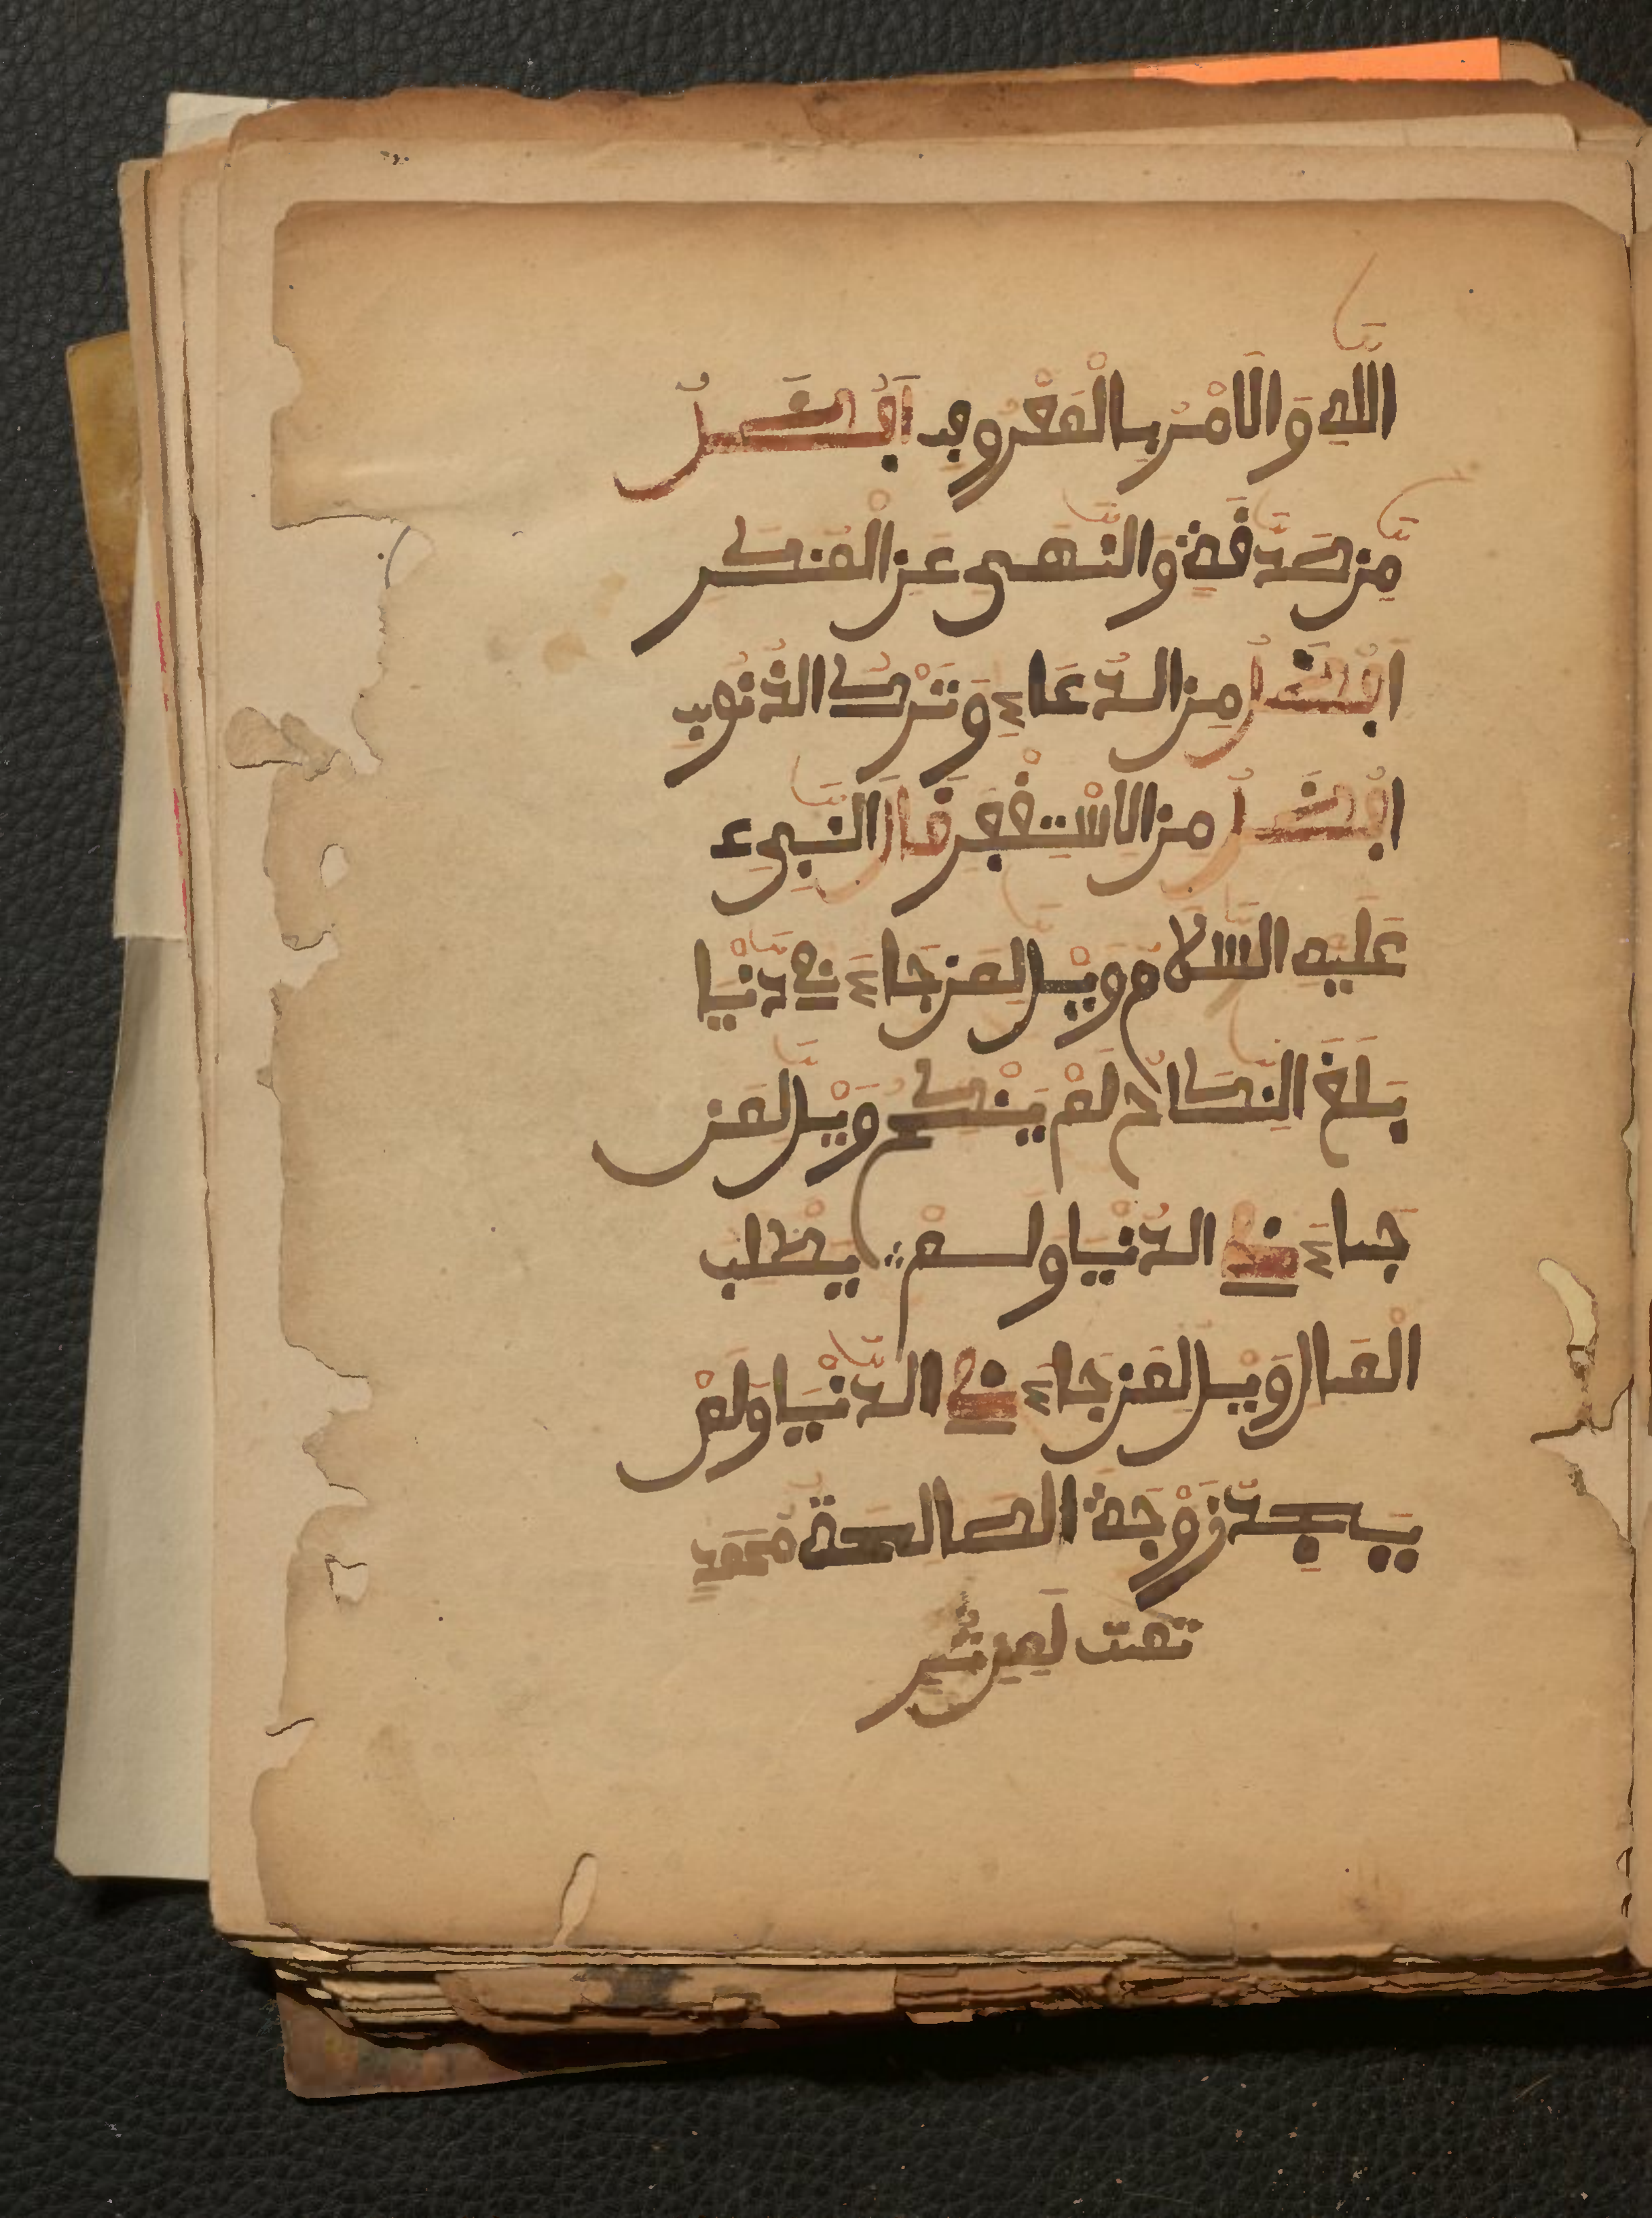 اللَّهِ وَالَامْرِ بِالْمَعْرُوفِ اَفْضَلُ
مِّن صَدَّقَةٍ وَالنَّهَىِ عَنِ الْمُنكَر
اَفْضَلُ مِنَ الدُّعَاءِ وَتَرْكُ الذُّنُوبِ
اَفْضَلُ مِنَ الِاسْتِغْفِرِ قَالَ النَّبِىءِ
عَلَيْهِ السَّلَامُ وَيْلٌ لِّمَن جَاءَ فِى دُنْيَا
بَلَغَ النِّكَاحُ لَمْ يَنْكِحُ وَيْلٌ لِّمَن
جَاءَ فِى الدُّنْيَا وَلَمْ يَطْلُب
الْمَالَ وَيْلٌ لِّمَن جَاءَ فِى الدُّنْيَا وَلَمْ
يَجِدْ زَوْجَةً الصَّالِحَة مُحَمَّدٍ
تمت